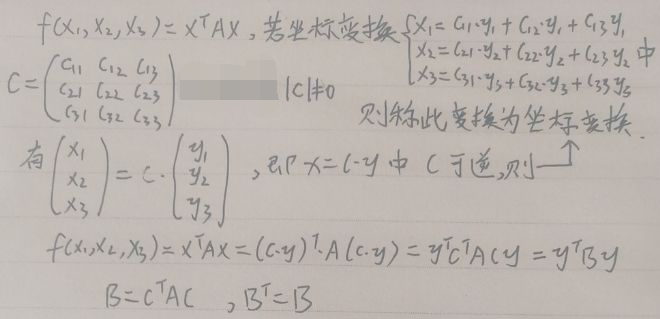 f(x₁,x₂,x₃)=xᵀAx,若坐标变换{x₁=C₁₁·y₁+C₁₂·y₁+C₁₃y₁
x₂=C₂₁·y₂+C₂₂·y₂+C₂₃y₂ 中
x₃=C₃₁·y₃+C₃₂·y₃+C₃₃y₃
C=(C₁₁ C₁₂ C₁₃
C₂₁ C₂₂ C₂₃
C₃₁ C₃₂ C₃₃) |C|≠0
则称此变换为坐标变换.
有(x₁ x₂ x₃)=C·(y₁ y₂ y₃),即x=C·y中 C可逆,则
f(x₁,x₂,x₃)=xᵀAx=(C·y)ᵀ·A(C·y)=yᵀCᵀACy=yᵀBy
B=CᵀAC ,Bᵀ=B